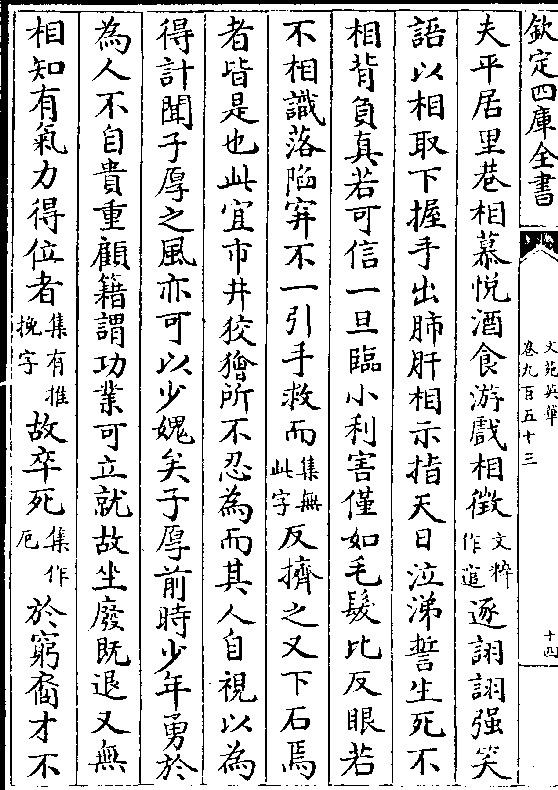 欽定四庫全書
文苑英華
卷九百五十三
十四
夫平居里巷相慕悅酒食游戲相徴文粹作追逐詡詡强笑
語以相取下握手出肺肝相示指天日泣涕誓生死不
相背負真若可信一旦臨小利害僅如毛髮比反眼若
不相識落陷穽不一引手救而集無此字反擠之又下石焉
者皆是也此宜市井狡獪所不忍為而其人自視以為
得計聞子厚之風亦可以少媿矣子厚前時少年勇於
為人不自貴重顧籍謂功業可立就故坐廢既退又無
相知有氣力得位者集有推挽字故卒死集作厄於窮裔才不